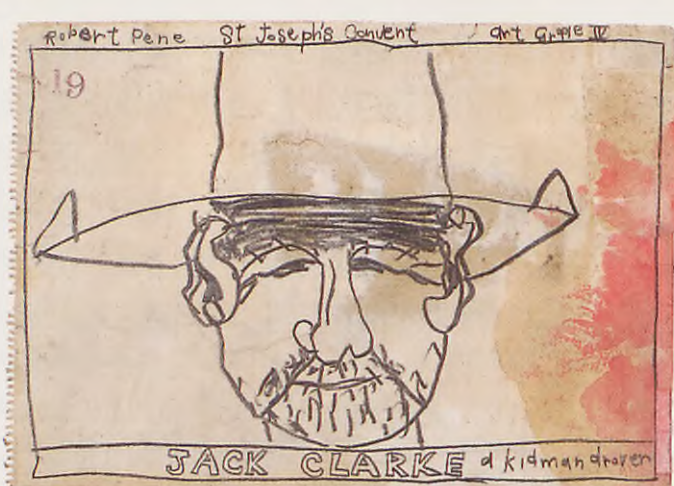 Robert Pene St Joseph's Convent Art Grade IV
19
JACK CLARKE a kidman drover